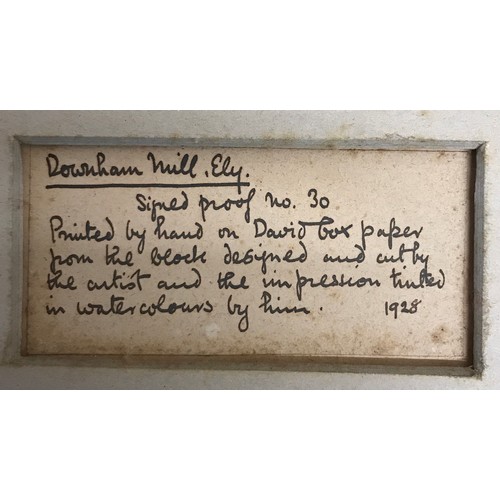 Downham Mill, Ely.
Signed proof no. 30
Printed by hand on David box paper
from the block designed and cut by
the artist and the impression tinted
in watercolours by him. 1928